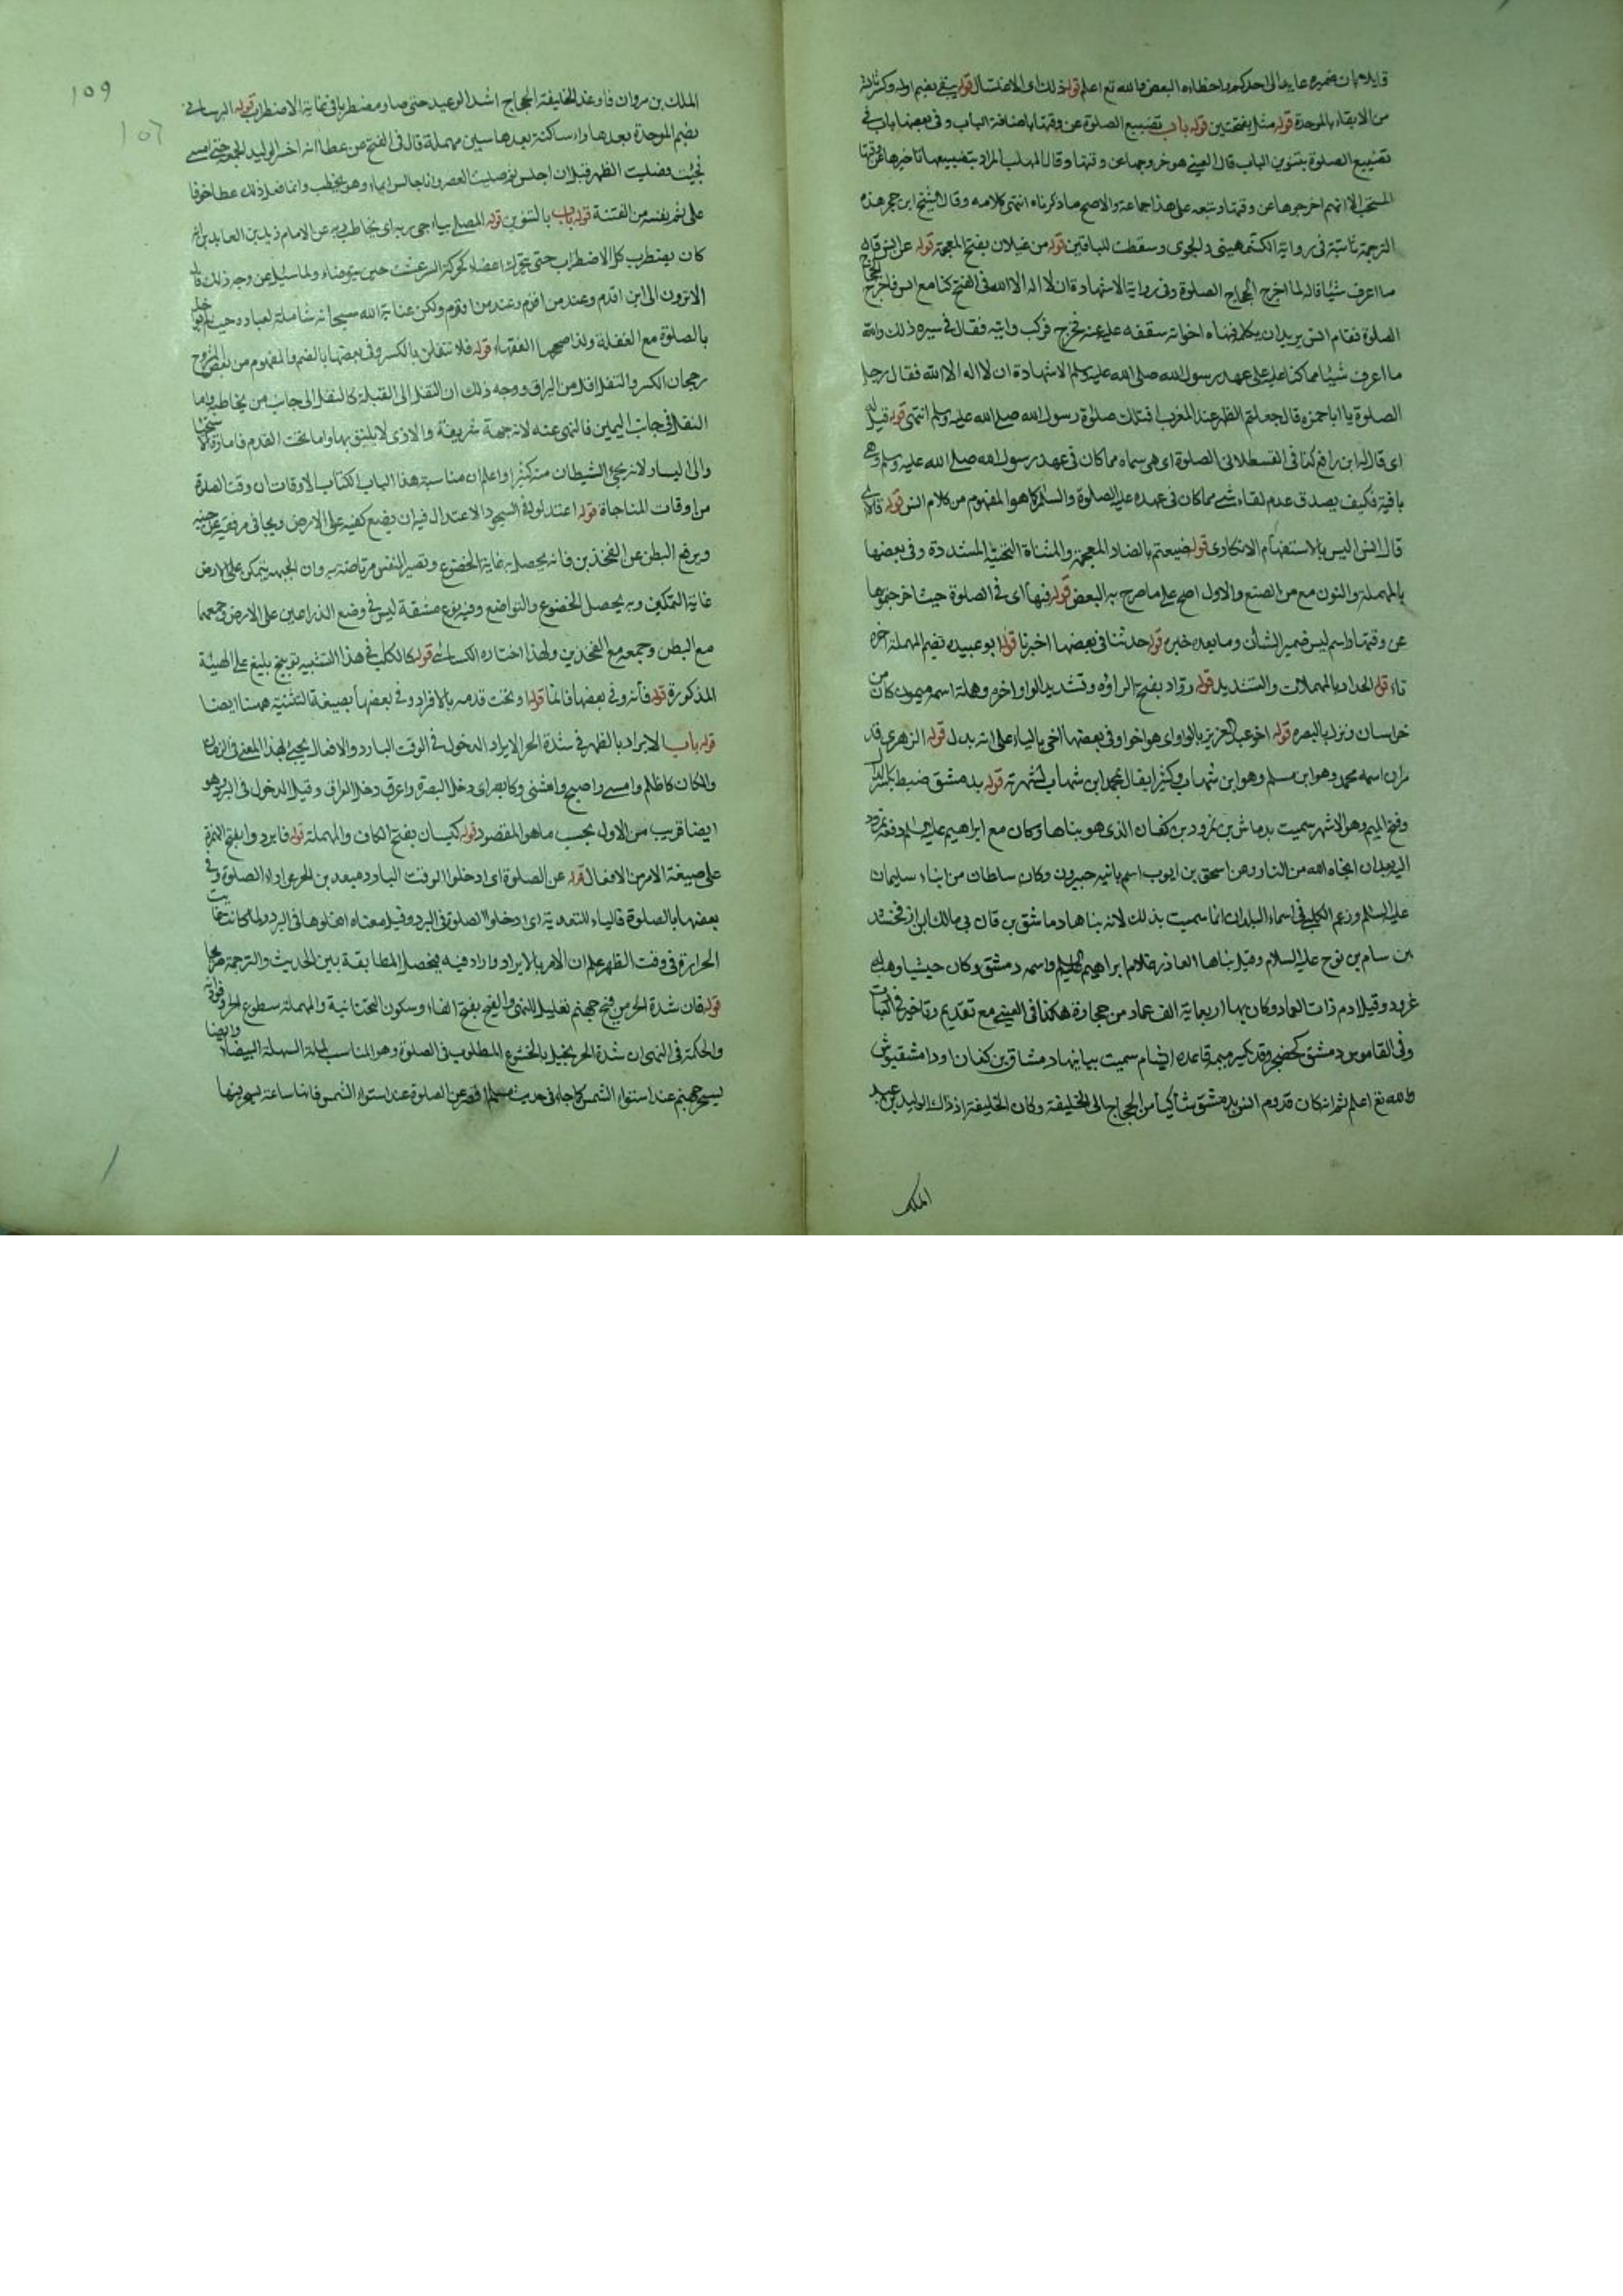 قايلا بان ضميره عايد الى احدكم واخطاءه البعض والله تع اعلم قوله ذلك اى الاغتسال قوله يبقى بضم اوله وكسر ثالثه
من الابقاء بالموحدة قوله مثل بفتحتين قوله باب تضييع الصلوة عن وقتها باضافة الباب وفى بعضها باب فى
تضييع الصلوة بتنوين الباب قال العينى هو خروجها عن وقتها وقال المهلب المراد بتضييعها تاخيرها عن وقتها
المستحب لا انهم اخرجوها عن وقتها وتبعه على هذا جماعة والاصح ما ذكرناه انتهى كلامه وقال الشيخ ابن حجر هذه
الترجمة ثابتة فى رواية الكشميهينى والحموى وسقطت للباقين قوله من غيلان بفتح المعجمة قوله عن انس قال
ما اعرف شيئا قاله لما اخرج الحجاج الصلوة وفى رواية الاشهادة ان لا اله الا الله فى الفتح كنا مع انس فاخرج الحجاج
الصلوة فقام انس يريد ان يكلمه فنهاه اخوانه شفقة عليه منه فخرج فركب دابته فقال فى سيره ذلك والله
ما اعرف شيئا مما كنا عليه على عهد رسول الله صلى الله عليه وسلم الا شهادة ان لا اله الا الله فقال رجل
الصلوة يا ابا حمزه قال جعلتم الظهر عند المغرب افتلك صلوة رسول الله صلى الله عليه وسلم انتهى قوله قيل له
اى قال له ابو رافع كذا فى القسطلانى الصلوة اى هى سماه مما كان فى عهد رسول الله صلى الله عليه وسلم وهى
باقية فكيف يصدق عدم لقاء شئ مما كان فى عهده عليه الصلوة والسلم كما هو المفهوم من كلام انس قوله قال اى
قال انس اليس بالاستفهام الانكارى قوله ضيعتم بالضاد المعجمة والمثناة التحتية المشددة وفى بعضها
بالمهملة والنون مع من الصنع والاول اصح على ما صرح به البعض قوله فيها اى فى الصلوة حيث اخرجتموها
عن وقتها واسم ليس ضمير الشأن وما بعده خبره قوله حدثنا فى بعضها اخبرنا قوله ابو عبيده بضم المهملة اخره
تاء قوله الحداد بالمهملات والتشديد قوله روّاد بفتح الراء وتشديد الواو اخره وهلة اسمه ميمون كان من
خراسان ونزل البصره قوله اخو عبد العزيز بالواو اى هو اخو وفى بعضها اخى بالياء على انه بدل قوله الزهرى قد
مر ان اسمه محمد وهو ابن مسلم وهو ابن شهاب وكثيرا يقال محمد ابن شهاب لشهرته قوله بدمشق ضبط بكسر الدال
وفتح الميم وهو الاشهر سميت بدماش بن نمرود بن كنعان الذى هو بناها وكان مع ابراهيم عليه السلم دفعه نمرود
اليه بعد ان انجاه الله من النار وعن اسحق بن ايوب اسم بانيه جيرون وكان ساطان من ابناء سليمان
عليه السلم وزعم الكلبى فى اسماء البلدان انما سميت بذلك لانه بناها دماشق بن قان بى مالك ابن ارفخشد
بن سام بن نوح عليه السلام وقيل بناها العاذر غلام ابراهيم عليه السلم واسمه دمشق وكان حبشيا وهبه له
نمرود وقيل ارم ذات العماد وكان بها اربعماية الف عماد من حجارة هكذا فى العينى مع تقديم وتاخير فى العبارات
وفى القاموس دمشق كحضجر وقد تكسر ميمه قاعدة الشام سميت ببانيها دمشاق بن كنعان او دامشقيوش
والله تع اعلم ثم انه كان قدوم انس بدمشق شاكيا من الحجاج الى الخليفة وكان الخليفة اذ ذاك الوليد بن عبد
الملك
109
106
الملك بن مروان فاوعد الخليفة الحجاج اشد الوعيد حتى صار مضطربا فى غاية الاضطراب قوله البرسانى
بضم الموحدة بعدها راء ساكنة بعدها سين مهملة قال فى الفتح عن عطا انه اخر الوليد الجمعة حتى امسى
فجئت وصليت الظهر قبل ان اجلس ثم صليت العصر وانا جالس ايماء وهو يخطب وانما فعل ذلك عطا خوفا
على نفسه من الفتنة قوله باب بالتنوين قوله المصلى يناجى ربه اى يخاطب ربه عن الامام زين العابدين انه
كان يضطرب كل الاضطراب حتى تتحرك اعضاءه كحركة المرتعش حين يتوضاء ولما سئل عن وجه ذلك قال
الا ترون الى اين اقدم وعند من اقوم ولكن عناية الله سبحانه شاملة لعباده حيث
بالصلوة مع الغفلة ولذا صححها الفقهاء قوله فلا تتفلن بالكسر وفى بعضها بالضم والمفهوم من بعض الشروح
رجحان الكسر والتفل اقل من البزاق ووجه ذلك ان التفل الى القبلة كالتفل الى جانب من يخاطبه واما
التفل فى جانب اليمين فالنهى عنه لانه جهة شريفة والاذى لا يليق بها واما تحت القدم
والى اليسار لانه يجئ الشيطان منه كثيرا واعلم ان مناسبة هذا الباب لكتاب الاوقات ان وقت الصلوة
من اوقات المناجاة قوله اعتدلوا فى السجود الاعتدال فيه ان يضع كفيه على الارض ويجافى مرفقيه عن جنبيه
ويرفع البطن عن الفخذين فانه يحصل به غاية الخضوع وتصير النفس مرتاضة به وان الجبهة يتمكن على الارض
غاية التمكين وبه يحصل الخضوع والتواضع وفيه نوع مشقة ليس فى وضع الذراعين على الارض وجمعهما
مع البطن وجمعه مع الفخذين ولهذا اختاره الكسالى قوله كالكلب فى هذا التشبيه توبيخ بليغ على الهيئة
المذكورة قوله فأنه وفى بعضها فانما قوله او تحت قدمه بالافراد وفى بعضها بصيغة التثنية ههنا ايضا
قوله باب الابراد بالظهر فى شدة الحر الايراد الدخول فى الوقت البارد والافعال يجئ لهذا المعنى فى الزمان
والمكان كاظلم وامسى واصبح واعشى وكابصر اى دخل البصرة واعرق دخل العراق وقيل الدخول فى البرد وهو
ايضا قريب من الاول بحسب ما هو المقصود قوله كيسان بفتح الكاف والمهملة قوله فابردوا بفتح الهمزة
على صيغة الامر من الافعال قوله عن الصلوة اى ادخلوا الوقت البارد مبعدين الحر عن اداء الصلوة وفى
بعضها بالصلوة فالباء للتعدية اى ادخلوا الصلوة فى البرد وقيل معناه افعلوها فى البرد ولما كانت غايت
الحرارة فى وقت الظهر علم ان الامر بالابراد وارد فيه فيحصل المطابقة بين الحديث والترجمة
قوله فان شدة الحر من فيح جهنم تعليل للنهى والفيح بفتح الفاء وسكون التحتانية والمهملة سطوع الحر وفورانه
والحكمة فى النهى ان شدة الحر يخيل بالخشوع المطلوب فى الصلوة وهو المناسب لملة السهلة البيضاء وايضا
يسجر جهنم عند استواء الشمس كما جاء فى حديث مسلم اقصر عن الصلوة عند استواء الشمس فانها ساعة يسجر فيها